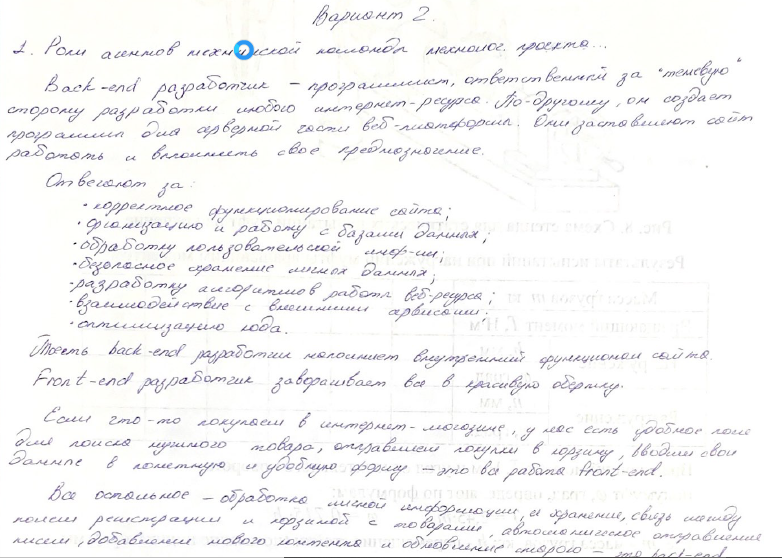 Вариант 2.
1. Роли агентов технической команды технолог. проекта...
Back-end разработчик – программист, ответственный за "теневую"
сторону разработки любого интернет-ресурса. По-другому, он создает
программы для серверной части веб-платформы. Они заставляют сайт
работать и выполнять свое предназначение.
Отвечают за:
· корректное функционирование сайта;
· организацию и работу с базами данных;
· обработку пользовательской инф-ии;
· безопасное хранение личных данных;
· разработку алгоритмов работы веб-ресурса;
· взаимодействие с внешними сервисами;
· оптимизацию кода.
То есть back-end разработчик наполняет внутренний функционал сайта.
Front-end разработчик заворачивает все в красивую обертку.
Если что-то покупаем в интернет-магазине, у нас есть удобное поле
для поиска нужного товара, отправляем покупки в корзину, вводим свои
данные в понятную и удобную форму – это все работа front-end.
Все остальное – обработка личной информации, ее хранение, связь между
полем регистрации и корзиной с товарами, автоматическое отправление
писем, добавление нового контента и обновление старого – это back-end
Рис. 8. Схема стенда для
Результаты испытаний при
Масса грузов m, кг
момент T, Н·м